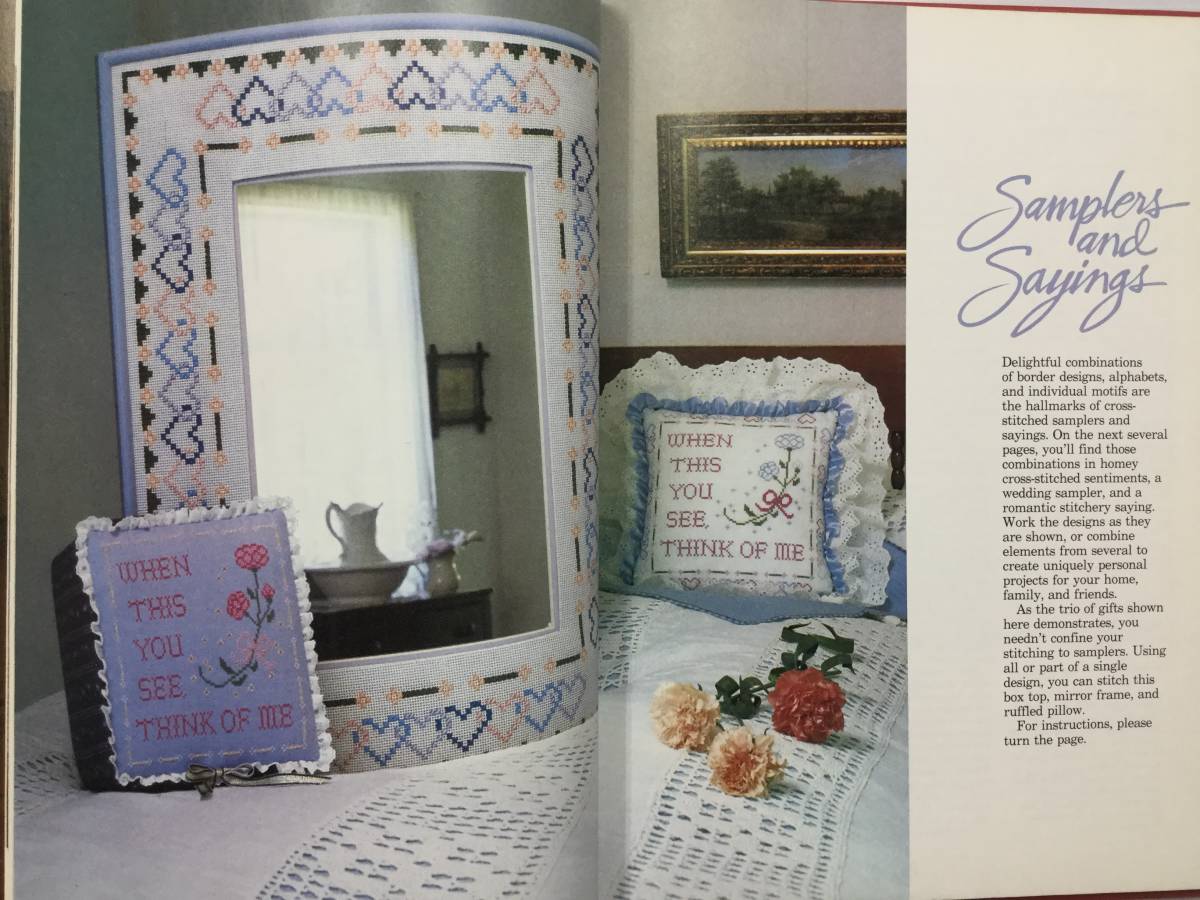 WHEN
THIS
YOU
SEE,
THINK OF ME
WHEN
THIS
YOU
SEE,
THINK OF ME
Samplers
and
Sayings
Delightful combinations
of border designs, alphabets,
and individual motifs are
the hallmarks of cross-
stitched samplers and
sayings. On the next several
pages, you'll find those
combinations in homey
cross-stitched sentiments, a
wedding sampler, and a
romantic stitchery saying.
Work the designs as they
are shown, or combine
elements from several to
create uniquely personal
projects for your home,
family, and friends.
As the trio of gifts shown
here demonstrates, you
needn't confine your
stitching to samplers. Using
all or part of a single
design, you can stitch this
box top, mirror frame, and
ruffled pillow.
For instructions, please
turn the page.